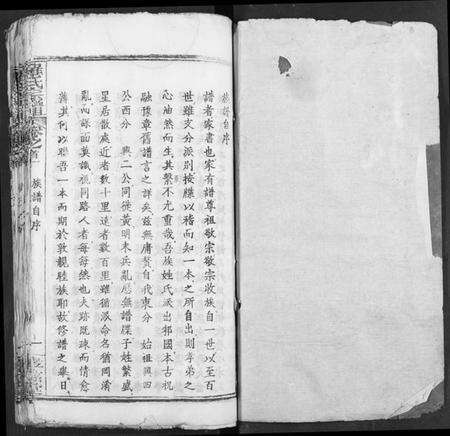 族譜自序
譜者家書也家有譜尊祖敬宗敬宗收族自一世以至百
世雖支分派別按牒以稽而知一本之所自出則孝弟之
心油然而生其繫不尤重哉吾族姓氏派出祁國本古祝
融豫章舊譜言之詳矣茲無庸贅自我東分 始祖興四
公西分 興二公同徙黃明末兵亂悉無譜牒子姓繁盛
星居散處近者數十里遠者數百里雖循派命名猶同淆
亂而謀面莫識視同路人者每每然也夫跡既疎而情愈
薄其何以聯吾一本而期於敦親睦族耶故修譜之舉日
族譜自序
一